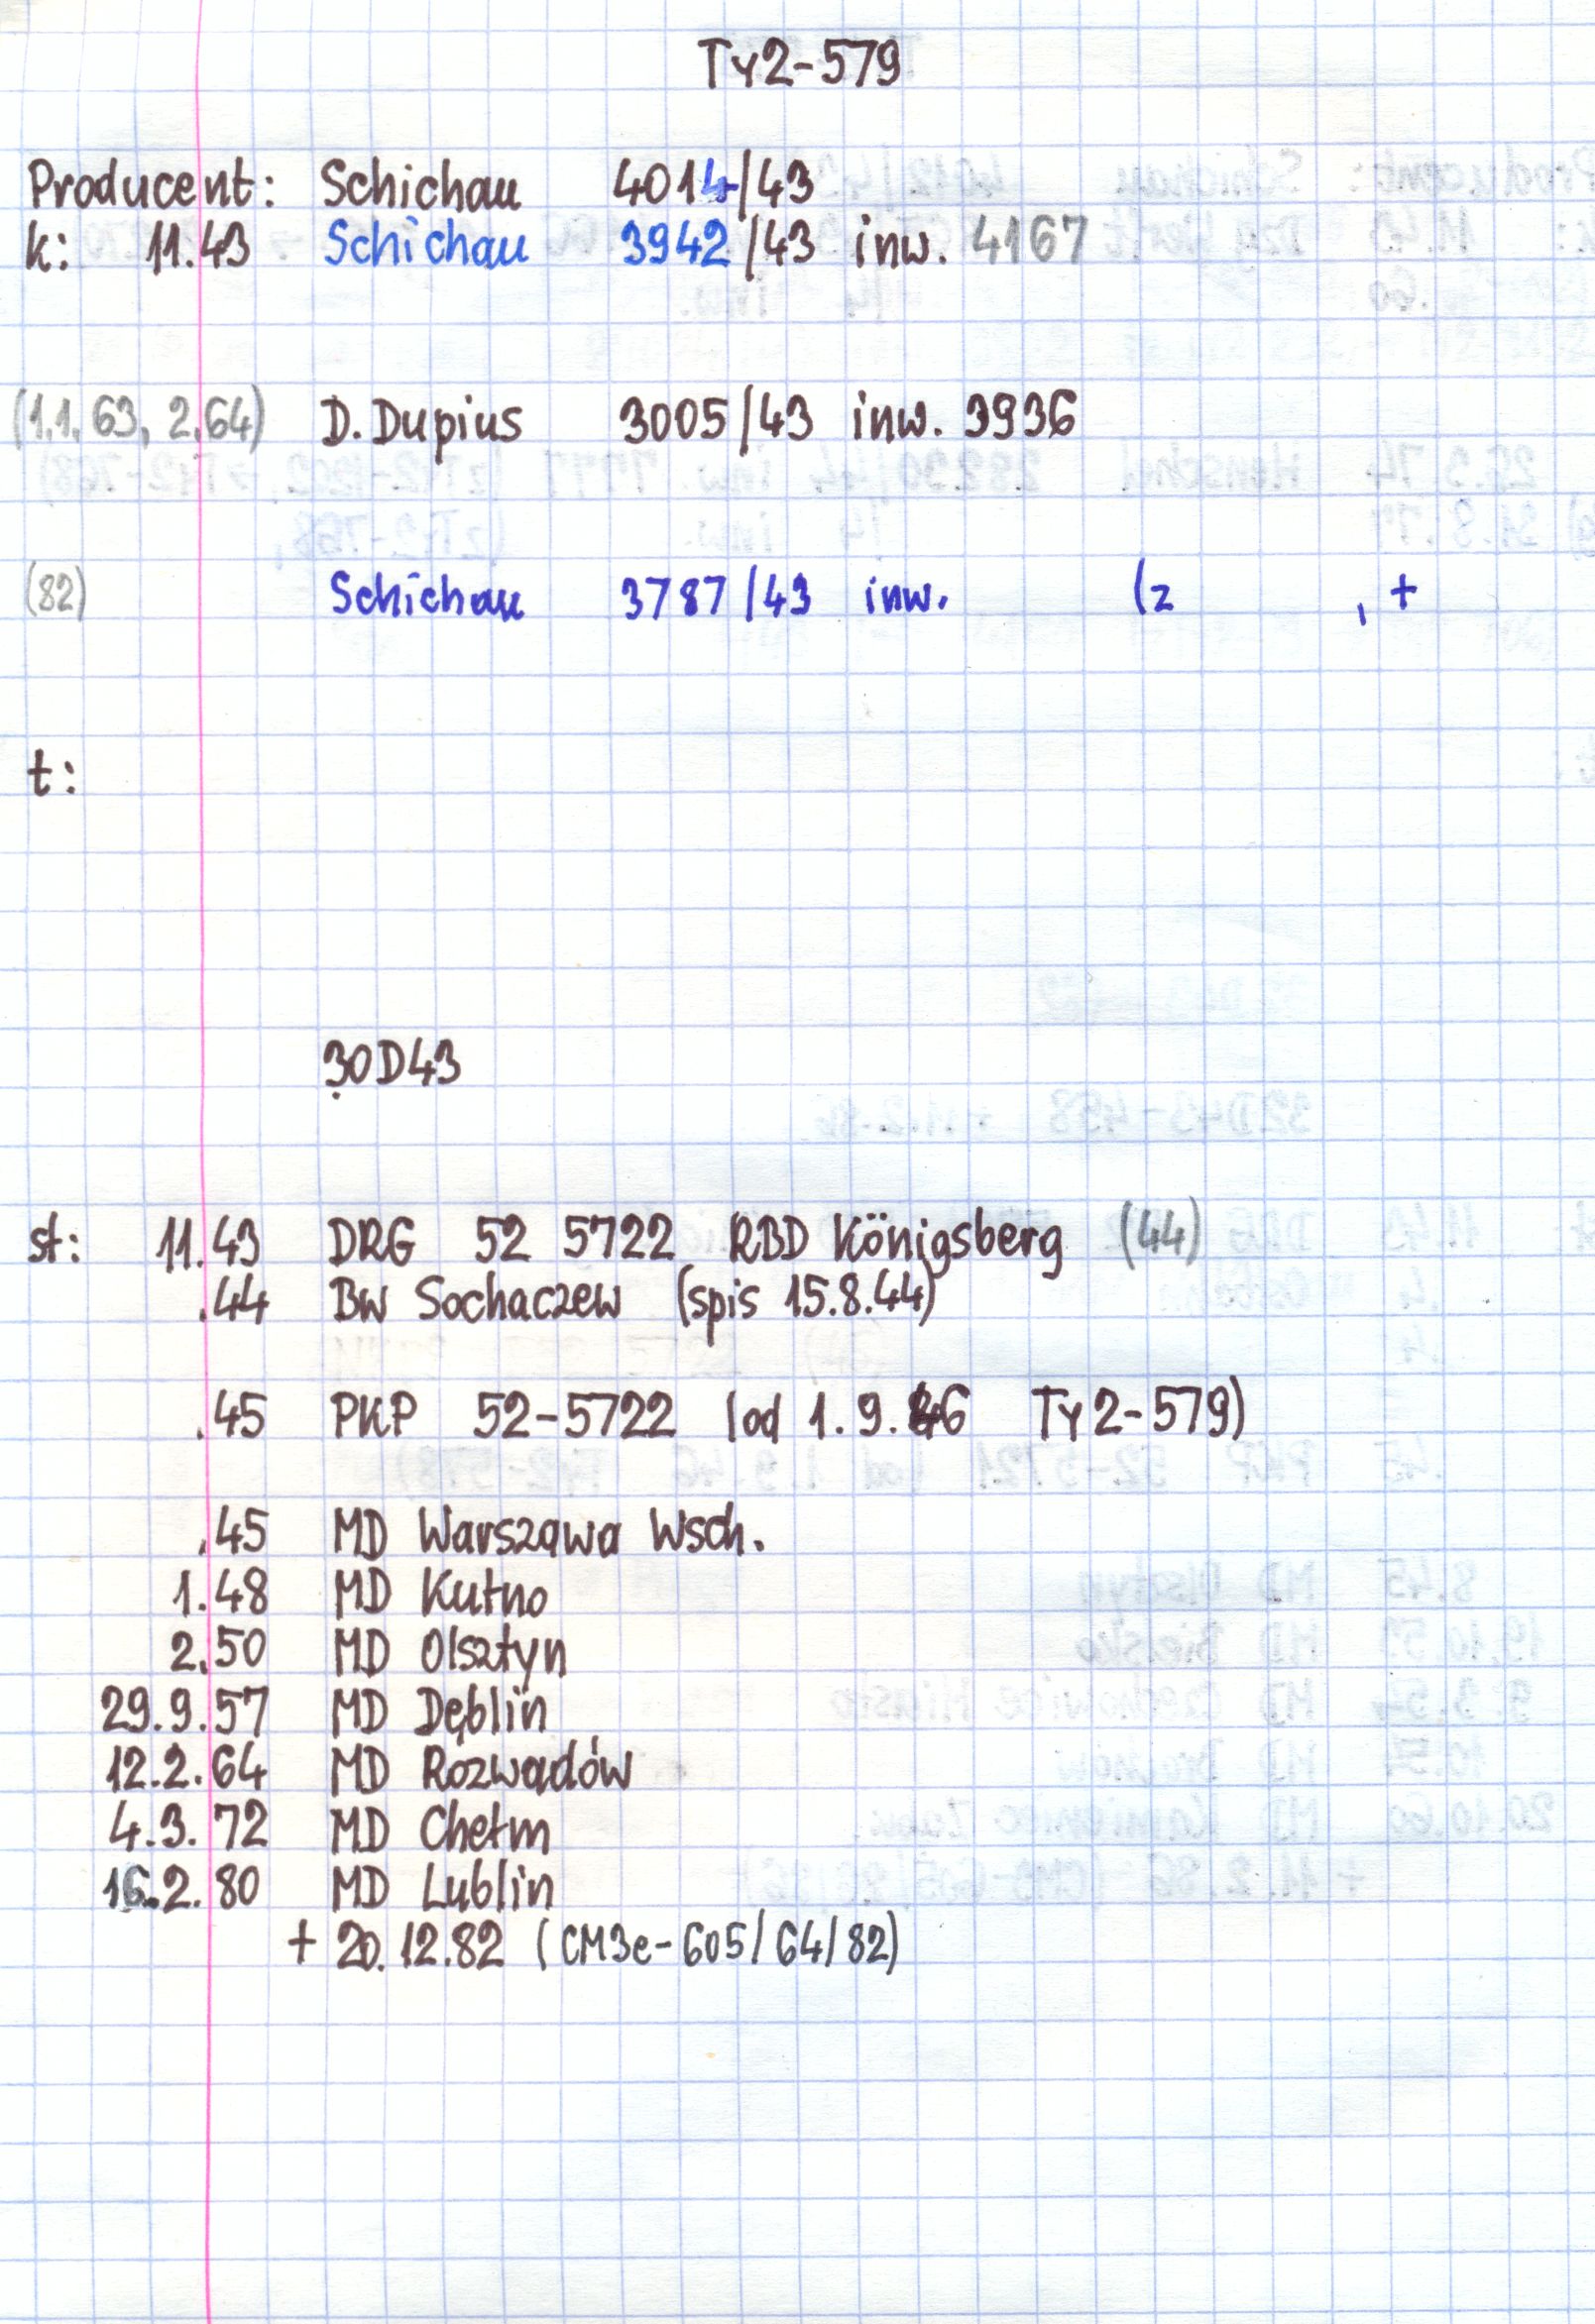 Ty2-579
Producent: Schichau 4014/43
k: 11.43 Schichau 3942/43 inw. 4167
(1.1.63, 2.64) D. Dupius 3005/43 inw. 3936
(82) Schichau 3787/43 inw. (z , +
t:
30D43
st: 11.43 DRG 52 5722 RBD Königsberg (44)
.44 BW Sochaczew (spis 15.8.44)
.45 PKP 52-5722 (od 1.9.46 Ty2-579)
.45 MD Warszawa Wsch.
1.48 MD Kutno
2.50 MD Olsztyn
29.9.57 MD Dęblin
12.2.64 MD Rozwadów
4.3.72 MD Chełm
16.2.80 MD Lublin
+ 20.12.82 (CM3e-605/64/82)